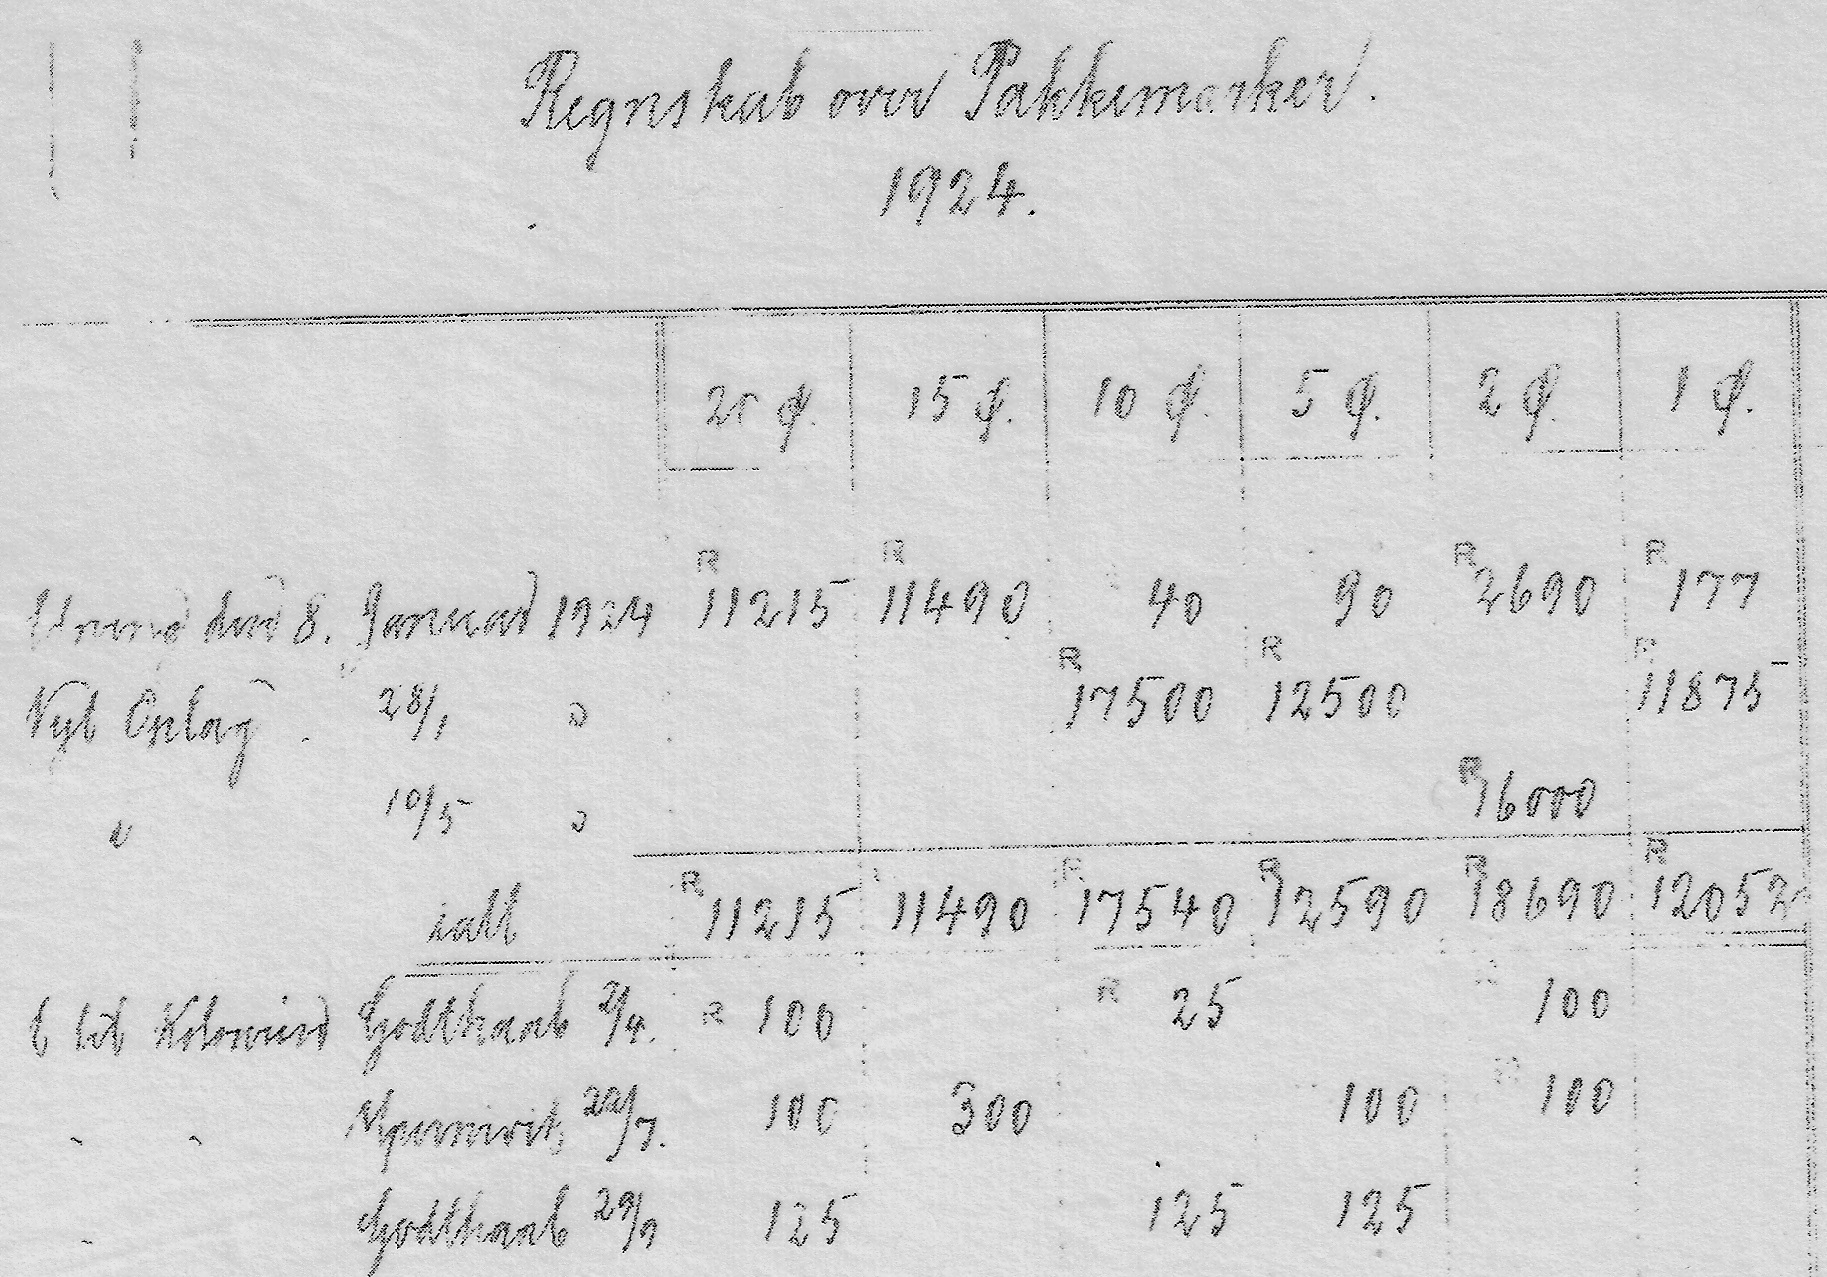 Regnskab over Pakkemærker.
1924.
25 Ø. 15 Ø. 10 Ø. 5 Ø. 2 Ø. 1 Ø.
8. Januar 1924 R 11215 R 11490 40 90 R 2690 R 177
Nyt Oplag 28/1 " R 17500 R 12500 R 11875
" 10/5 " R 6000
ialt R 11215 11490 R 17540 R 12590 R 8690 R 12052
til Kolonien Godthaab 2/4. R 100 R 25 100
" " Upernivik 22/7. 100 300 100 100
" Godthaab 29/9 125 125 125